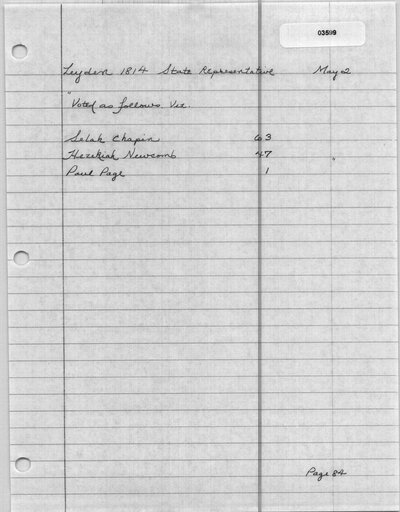 03599
Leyden 1814 State Representative May 2
"Voted as follows Viz.
Selah Chapin 63
Hezekiah Newcomb 47 "
Paul Page 1
Page 84